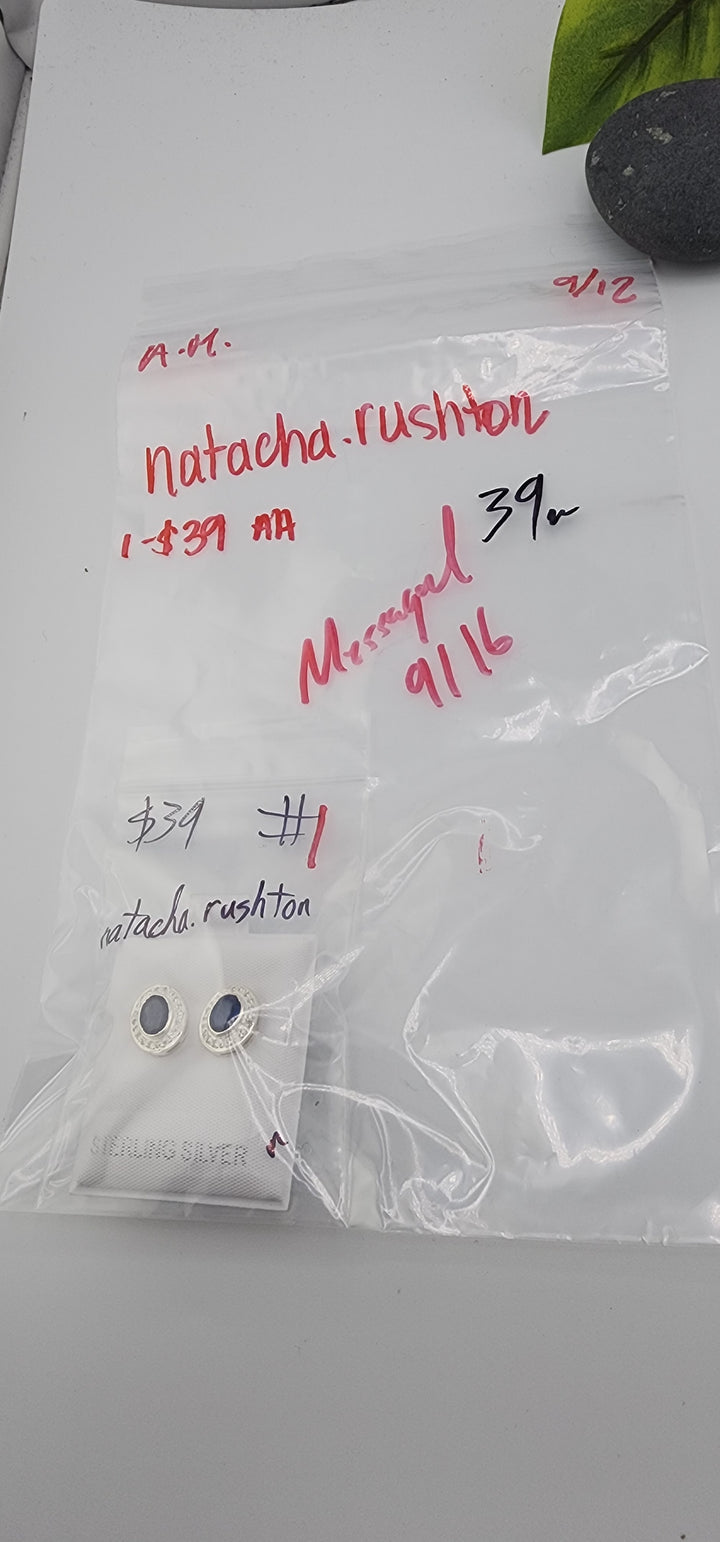 9/12
A.M.
natacha.rushton
1-$39 AA
39
Messaged
9/16
$39 #1
natacha.rushton
STERLING SILVER